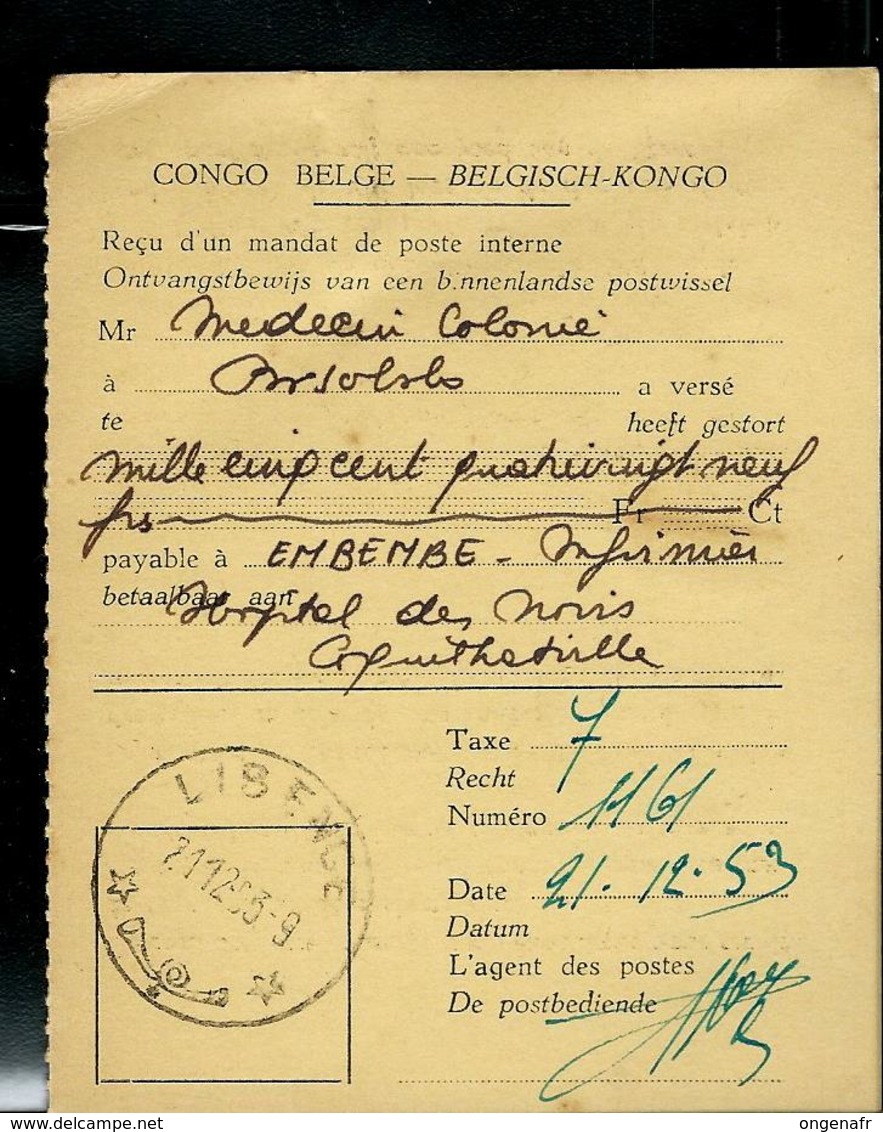 CONGO BELGE — BELGISCH-KONGO
Reçu d'un mandat de poste interne
Ontvangstbewijs van een binnenlandse postwissel
Mr Medecin Colonie
à a versé
te heeft gestort
Mille cinq cent quatrevingt neuf
frs Fr Ct
payable à EMBEMBE - Infirmier
betaalbaar aan Hopital des Noirs
Coquilhatville
Taxe 7
Recht
Numéro 1161
Date 21.12.53
Datum
L'agent des postes
De postbediende
LIBENGE
211253-9
www.delcampe.net
ongenafr